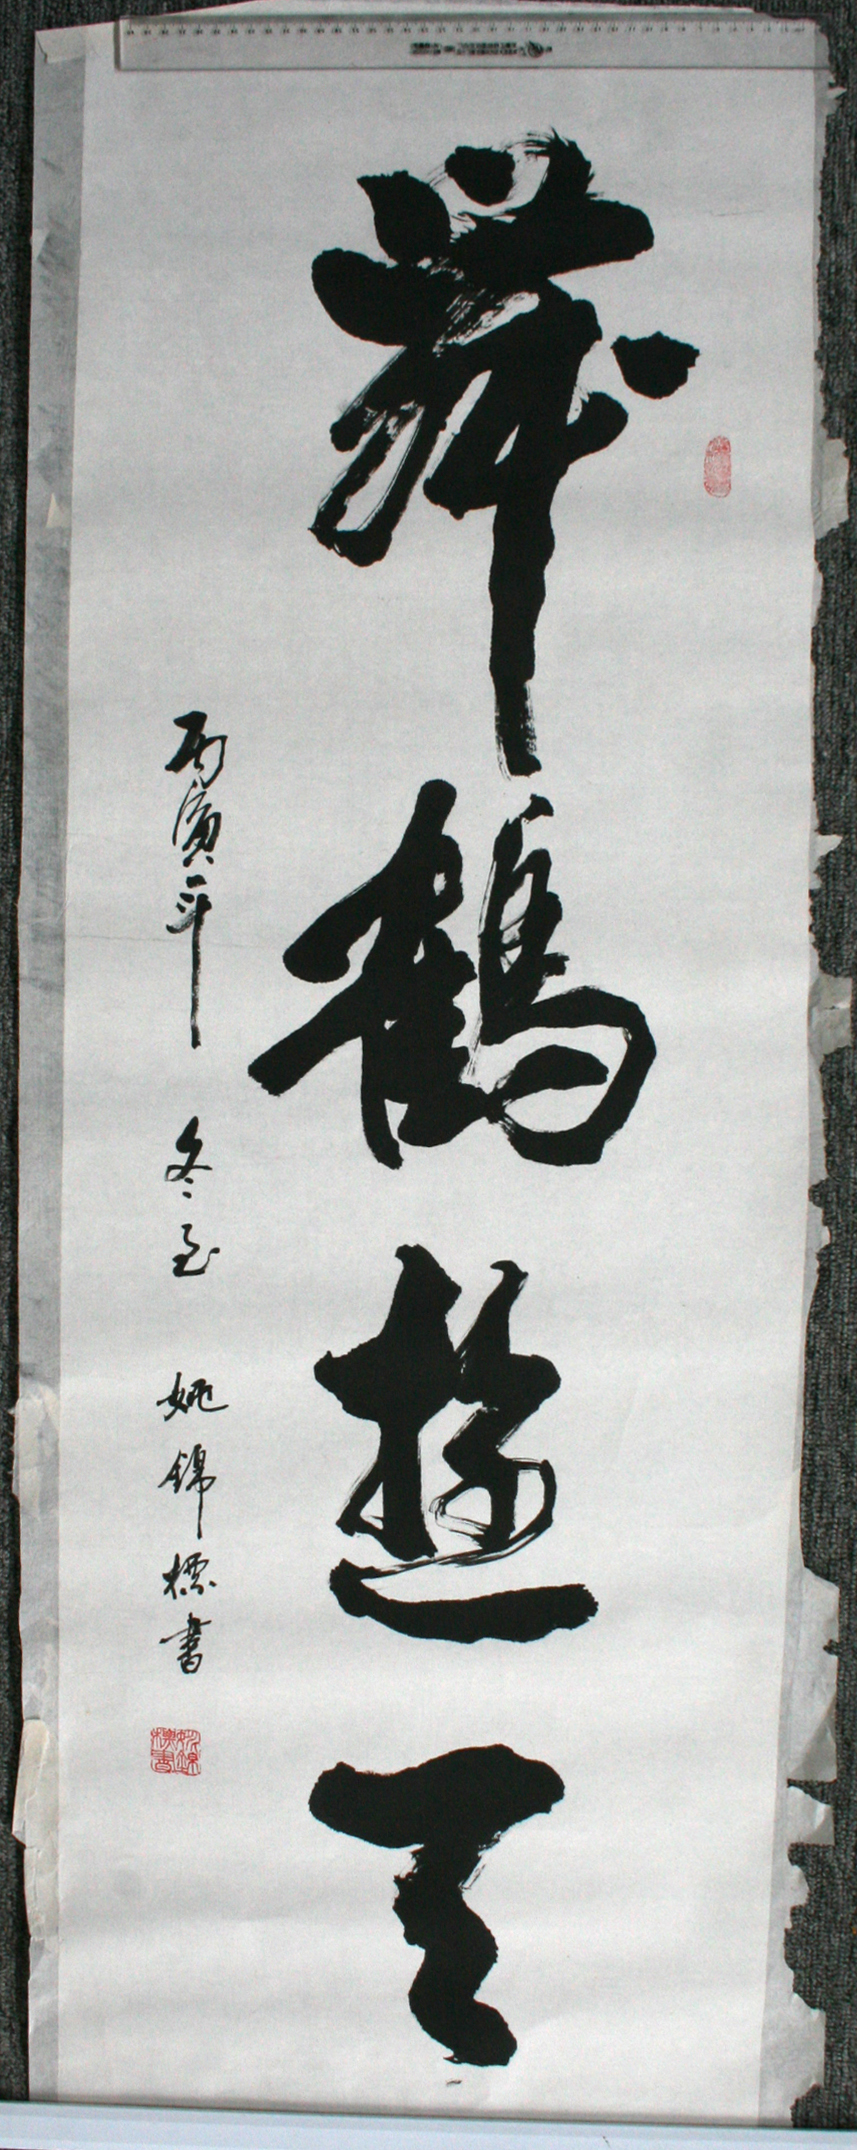 舞鶴遊天
丙寅年 冬至 姚錦標書